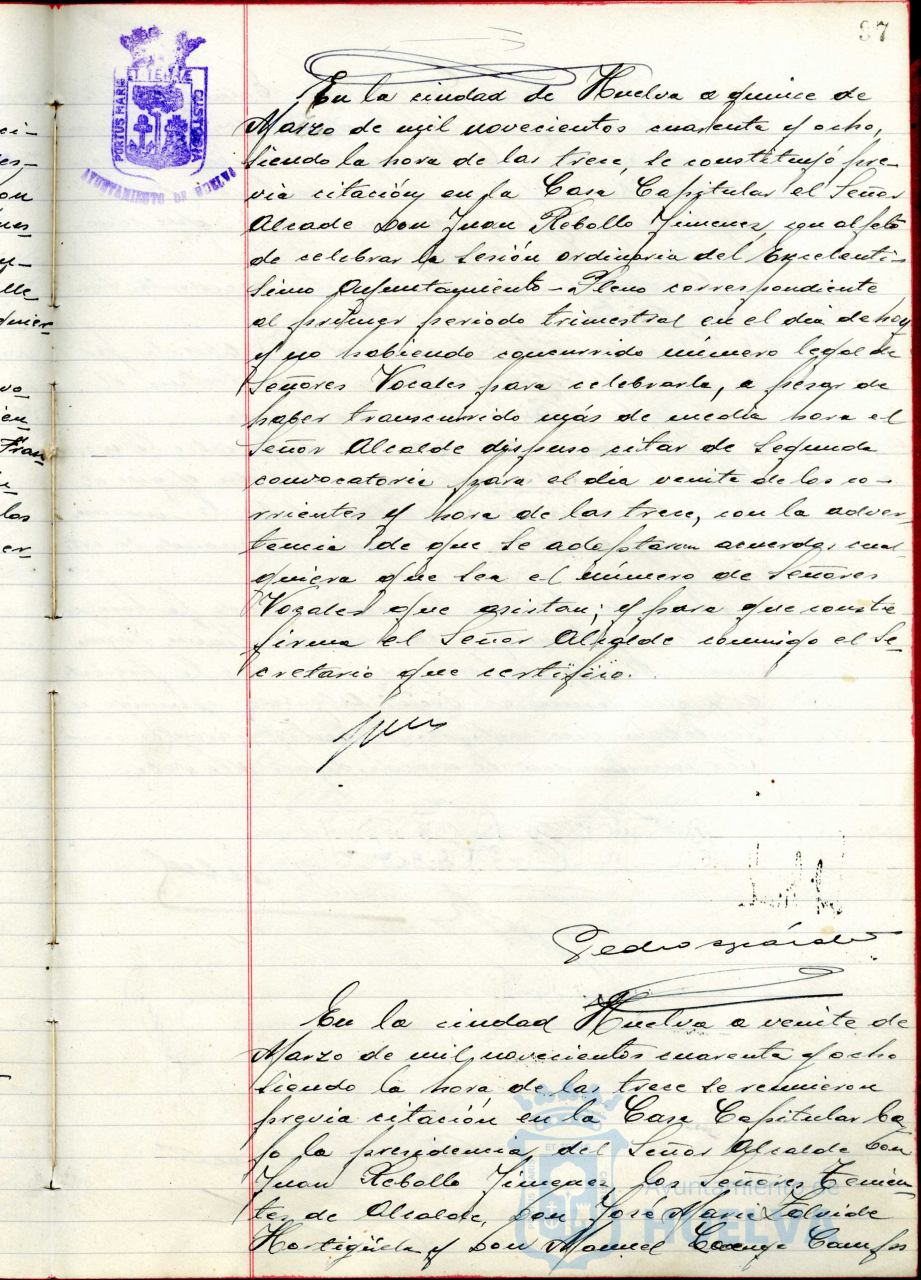 97
PORTUS MARIS ET TERRE CUSTODIA
AYUNTAMIENTO DE HUELVA
En la ciudad de Huelva a quince de
Marzo de mil novecientos cuarenta y ocho,
siendo la hora de las trece, se constituyó pre-
via citación en la Casa Capitular el Señor
Alcade Don Juan Rebollo Jimenez, con
de celebrar la sesión ordinaria del Excelenti-
simo Ayuntamiento-Pleno correspondiente
al primer periodo trimestral en el día de hoy
y no habiendo concurrido número legal de
Señores Vocales para celebrarla, a pesar de
haber transcurrido más de media hora el
Señor Alcalde dispuso citar de segunda
convocatoria para el día veinte de los co-
rrientes y hora de las trece, con la adver-
tencia de que se adoptaran acuerdos cual
quiera que sea el número de Señores
Vocales que asistan; y para que conste
firma el Señor Alcalde conmigo el Se-
cretario que certifico.
En la ciudad Huelva a veinte de
Marzo de mil novecientos cuarenta y ocho
siendo la hora de las trece se reunieron
previa citación en la Casa Capitular ba
jo la presidencia del Señor Alcalde Don
Juan Rebollo Jimenez, los Señores Tenien-
tes de Alcalde, Don Jose Maria
Hortigüela y Don Manuel
Ayuntamiento de
HUELVA